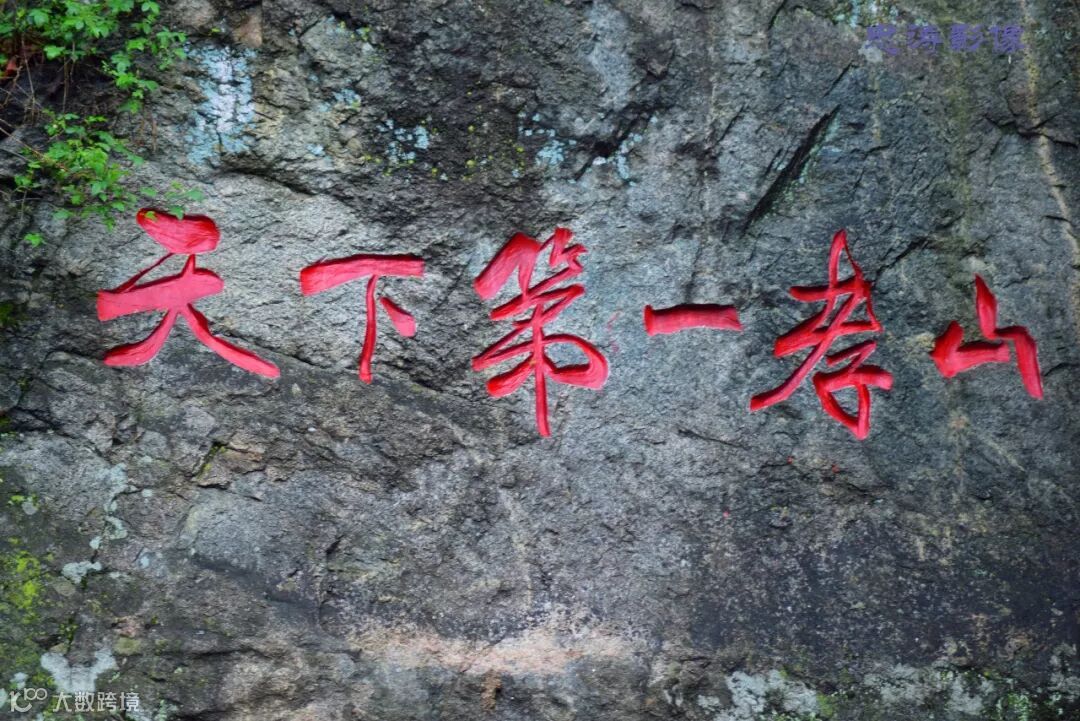 忠涛影像
天下第一孝山
100 大数跨境